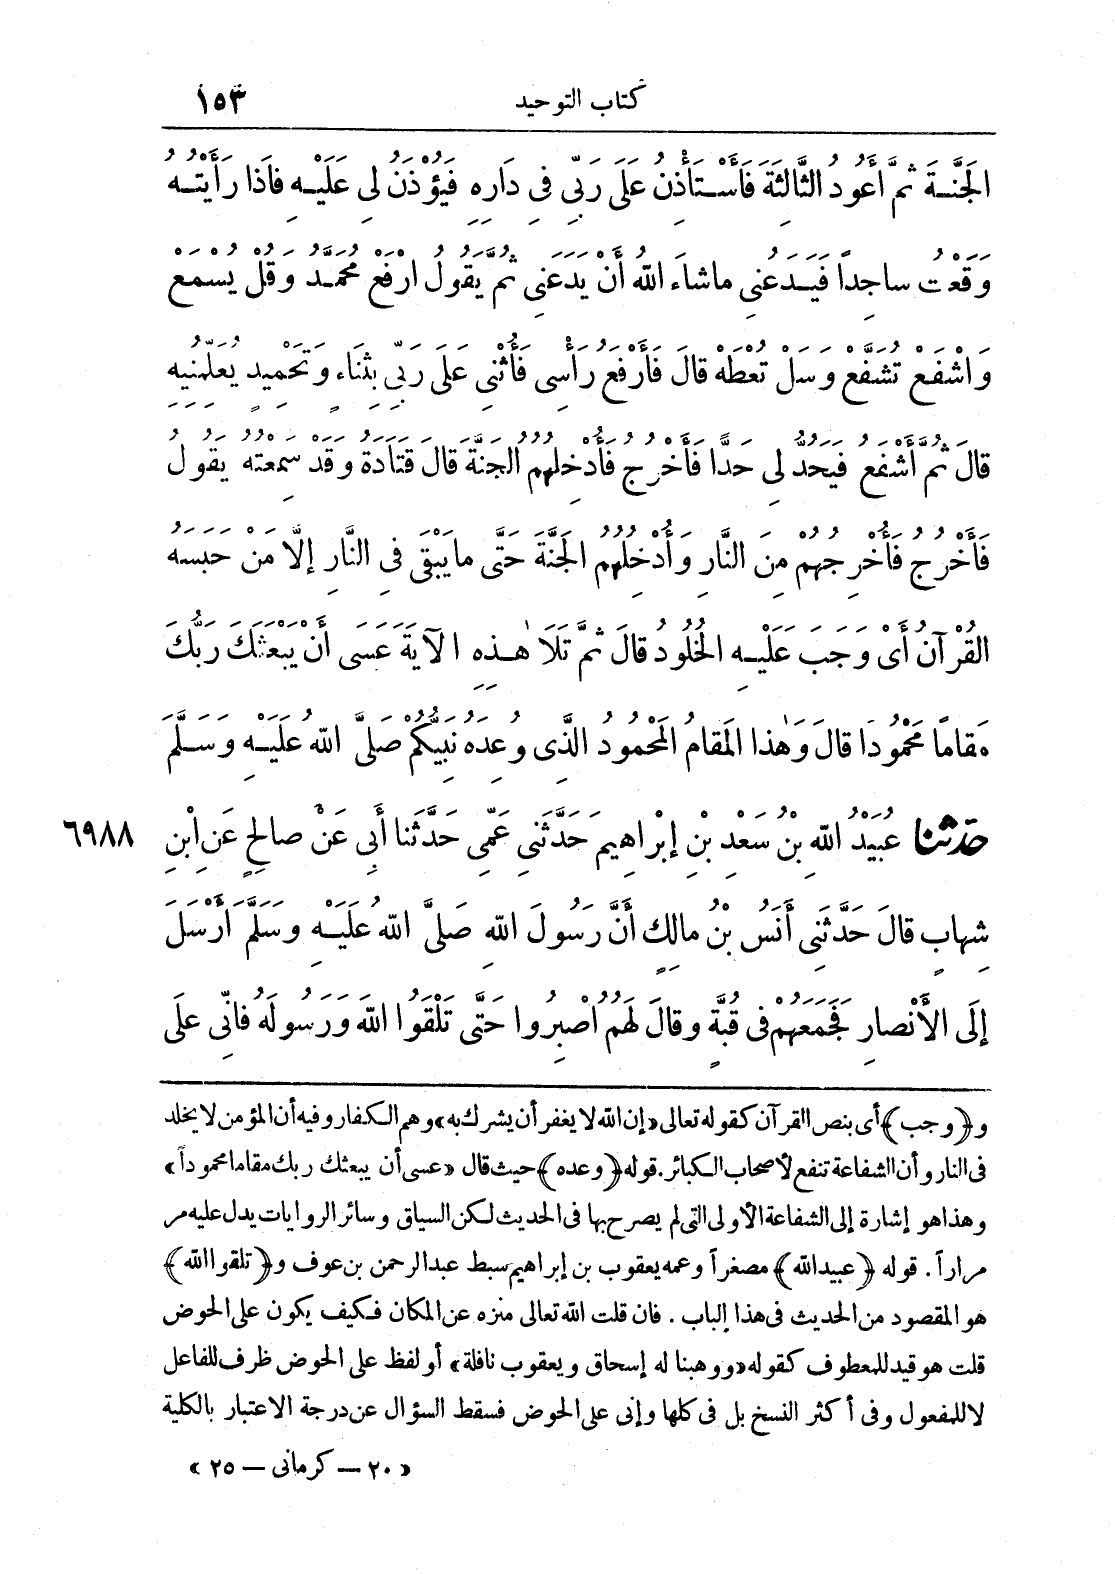 كتاب التوحيد ١٥٣
الجَنَّةَ ثُمَّ أَعُودُ الثَّالِثَةَ فَأَسْتَأْذِنُ عَلَى رَبِّي فِي دَارِهِ فَيُؤْذَنُ لِي عَلَيْهِ فَاذَا رَأَيْتُهُ
وَقَعْتُ ساجِداً فَيَدَعُنِي ماشاءَ اللهُ أَنْ يَدَعَنِي ثُمَّ يَقُولُ ارْفَعْ مُحَمَّدُ وَقُلْ يُسْمَعْ
وَاشْفَعْ تُشَفَّعْ وَسَلْ تُعْطَهْ قالَ فَأَرْفَعُ رَأْسِي فَأُثْنِي عَلَى رَبِّي بِثَناءٍ وَتَحْمِيدٍ يُعَلِّمُنِيهِ
قالَ ثُمَّ أَشْفَعُ فَيَحُدُّ لِي حَدًّا فَأَخْرُجُ فَأُدْخِلُهُمُ الجَنَّةَ قالَ قَتَادَةُ وَقَدْ سَمِعْتُهُ يَقُولُ
فَأَخْرُجُ فَأُخْرِجُهُمْ مِنَ النَّارِ وَأُدْخِلُهُمُ الجَنَّةَ حَتَّى مايَبْقَى فِي النَّارِ إِلَّا مَنْ حَبَسَهُ
القُرْآنُ أَيْ وَجَبَ عَلَيْهِ الخُلُودُ قالَ ثُمَّ تَلَا هٰذِهِ الآيَةَ عَسَى أَنْ يَبْعَثَكَ رَبُّكَ
مَقاماً مَحْمُودًا قالَ وَهٰذا المَقامُ المَحْمُودُ الَّذِي وُعِدَهُ نَبِيُّكُمْ صَلَّى اللهُ عَلَيْهِ وَسَلَّمَ
٦٩٨٨ حدثنا عُبَيْدُ اللهِ بْنُ سَعْدِ بْنِ إِبْراهِيمَ حَدَّثَنِي عَمِّي حَدَّثَنا أَبِي عَنْ صالِحٍ عَنِ ابْنِ
شِهابٍ قالَ حَدَّثَنِي أَنَسُ بْنُ مالِكٍ أَنَّ رَسُولَ اللهِ صَلَّى اللهُ عَلَيْهِ وَسَلَّمَ أَرْسَلَ
إِلَى الأَنْصارِ فَجَمَعَهُمْ فِي قُبَّةٍ وَقالَ لَهُمُ اصْبِرُوا حَتَّى تَلْقَوُا اللهَ وَرَسُولَهُ فَانِّي عَلَى
و﴿وجب﴾ أى بنص القرآن كقوله تعالى «إن الله لا يغفر أن يشرك به» وهم الكفار وفيه أن المؤمن لا يخلد
فى النار وأن الشفاعة تنفع لأصحاب الكبائر. قوله ﴿وعده﴾ حيث قال «عسى أن يبعثك ربك مقاما محموداً»
وهذا هو إشارة إلى الشفاعة الأولى التى لم يصرح بها فى الحديث لكن السياق وسائر الروايات يدل عليه مر
مراراً. قوله ﴿عبيد الله﴾ مصغراً وعمه يعقوب بن إبراهيم سبط عبد الرحمن بن عوف و﴿تلقوا الله﴾
هو المقصود من الحديث فى هذا الباب. فان قلت الله تعالى منزه عن المكان فكيف يكون على الحوض
قلت هو قيد للمعطوف كقوله «ووهبنا له إسحاق ويعقوب نافلة» أو لفظ على الحوض ظرف للفاعل
لا للمفعول وفى أكثر النسخ بل فى كلها وإنى على الحوض فسقط السؤال عن درجة الاعتبار بالكلية
«٢٠ — كرمانى — ٢٥»